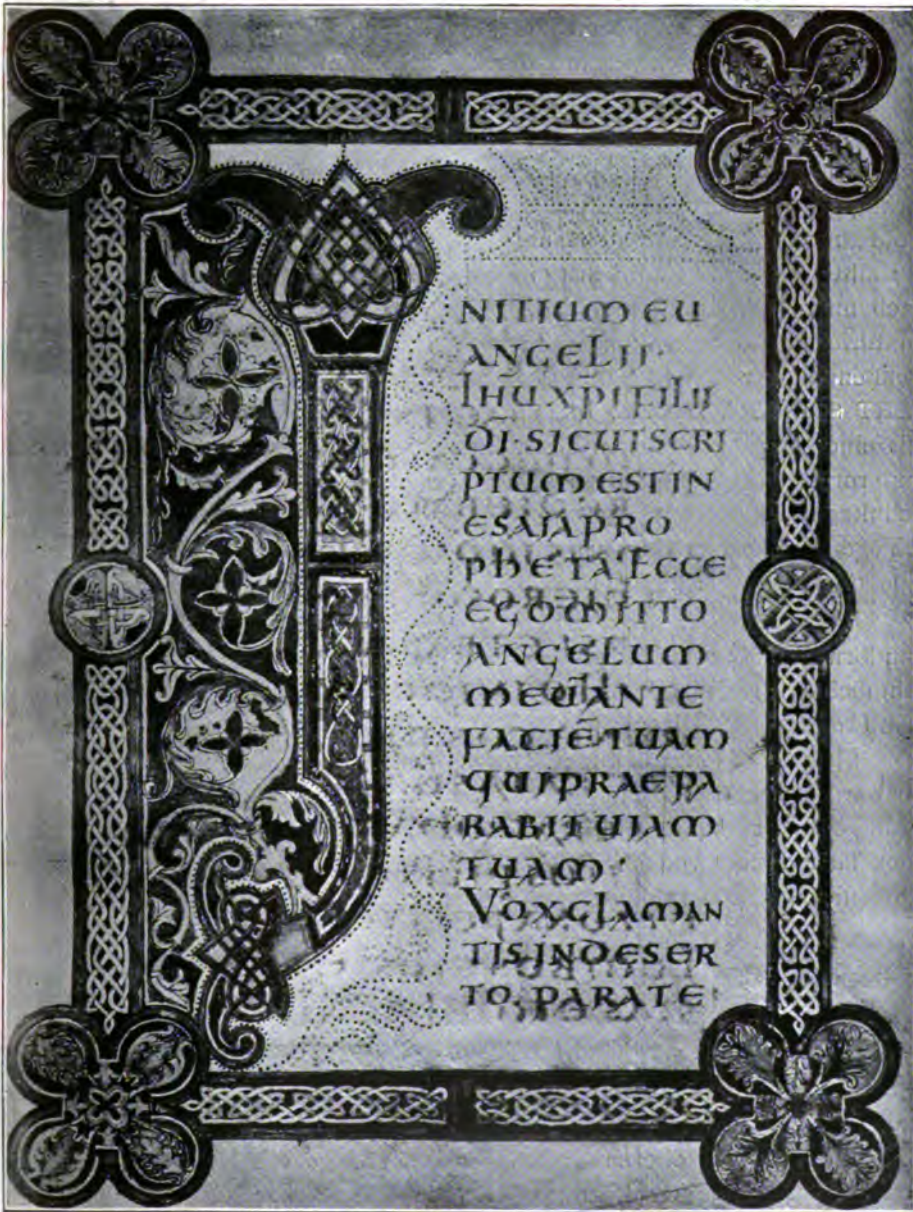 I
NITIUM EU
ANGELII·
IHU XP̄I FILII
D̄I· SICUT SCRI
PTUM EST IN
ESAIA PRO
PHETA· ECCE
EGO MITTO
ANGELUM
MEŪ ANTE
FACIĒ TUAM
QUI PRAEPA
RABIT UIAM
TUAM·
VOX CLAMAN
TIS IN DESER
TO. PARATE